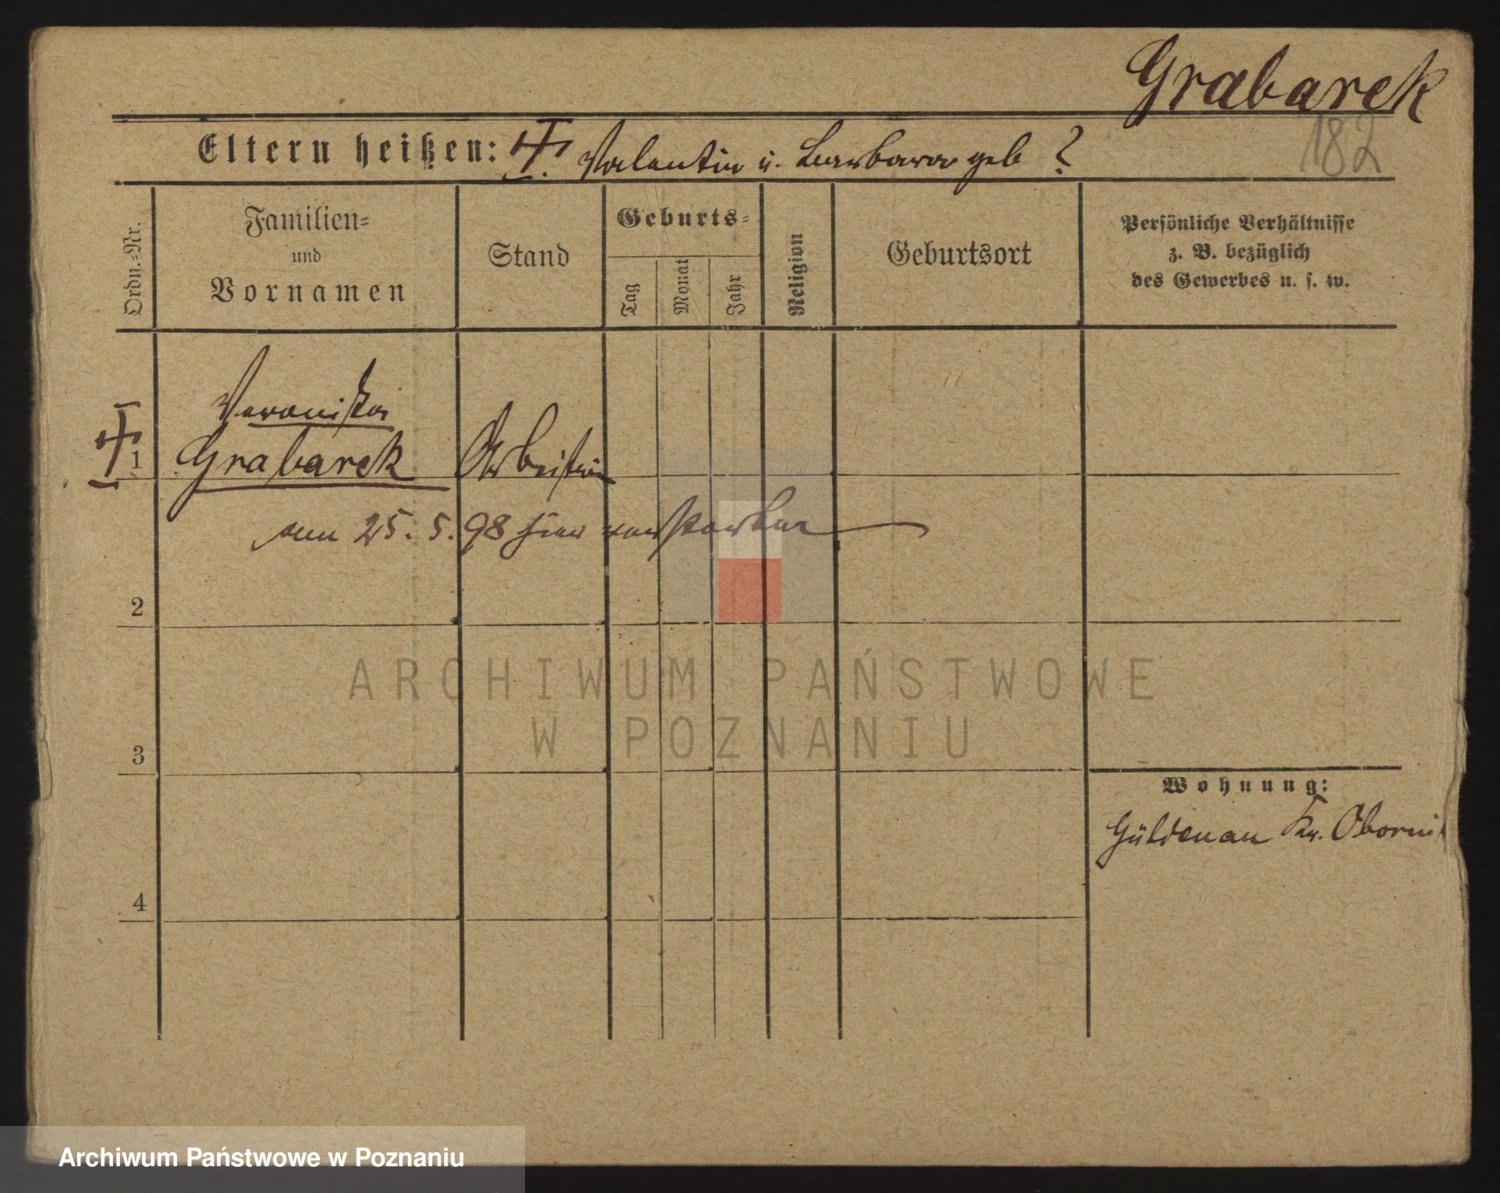 Grabarek
182
Eltern heißen: Valentin u. Barbara geb ?
Ordn.=Nr.
Familien=
und
Vornamen
Stand
Geburts=
Tag
Monat
Jahr
Religion
Geburtsort
Persönliche Verhältnisse
z. B. bezüglich
des Gewerbes u. s. w.
Veronika
1 Grabarek Arbeiterin
am 25. 5. 98 hier verstorben
2
ARCHIWUM PAŃSTWOWE
W POZNANIU
3
Wohnung:
Güldenau Kr. Obornik
4
Archiwum Państwowe w Poznaniu